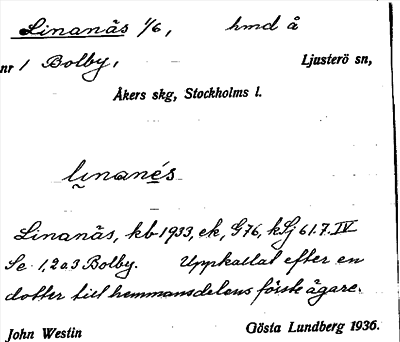 Linanäs 1/6, hmd å
nr 1 Bolby, Ljusterö sn,
Åkers skg, Stockholms l.
linanés
Linanäs, kb 1933, ek, G76, kSj 61.7.IV
Se 1, 2 o. 3 Bolby. Uppkallat efter en
dotter till hemmansdelens förste ägare.
John Westin Gösta Lundberg 1936.